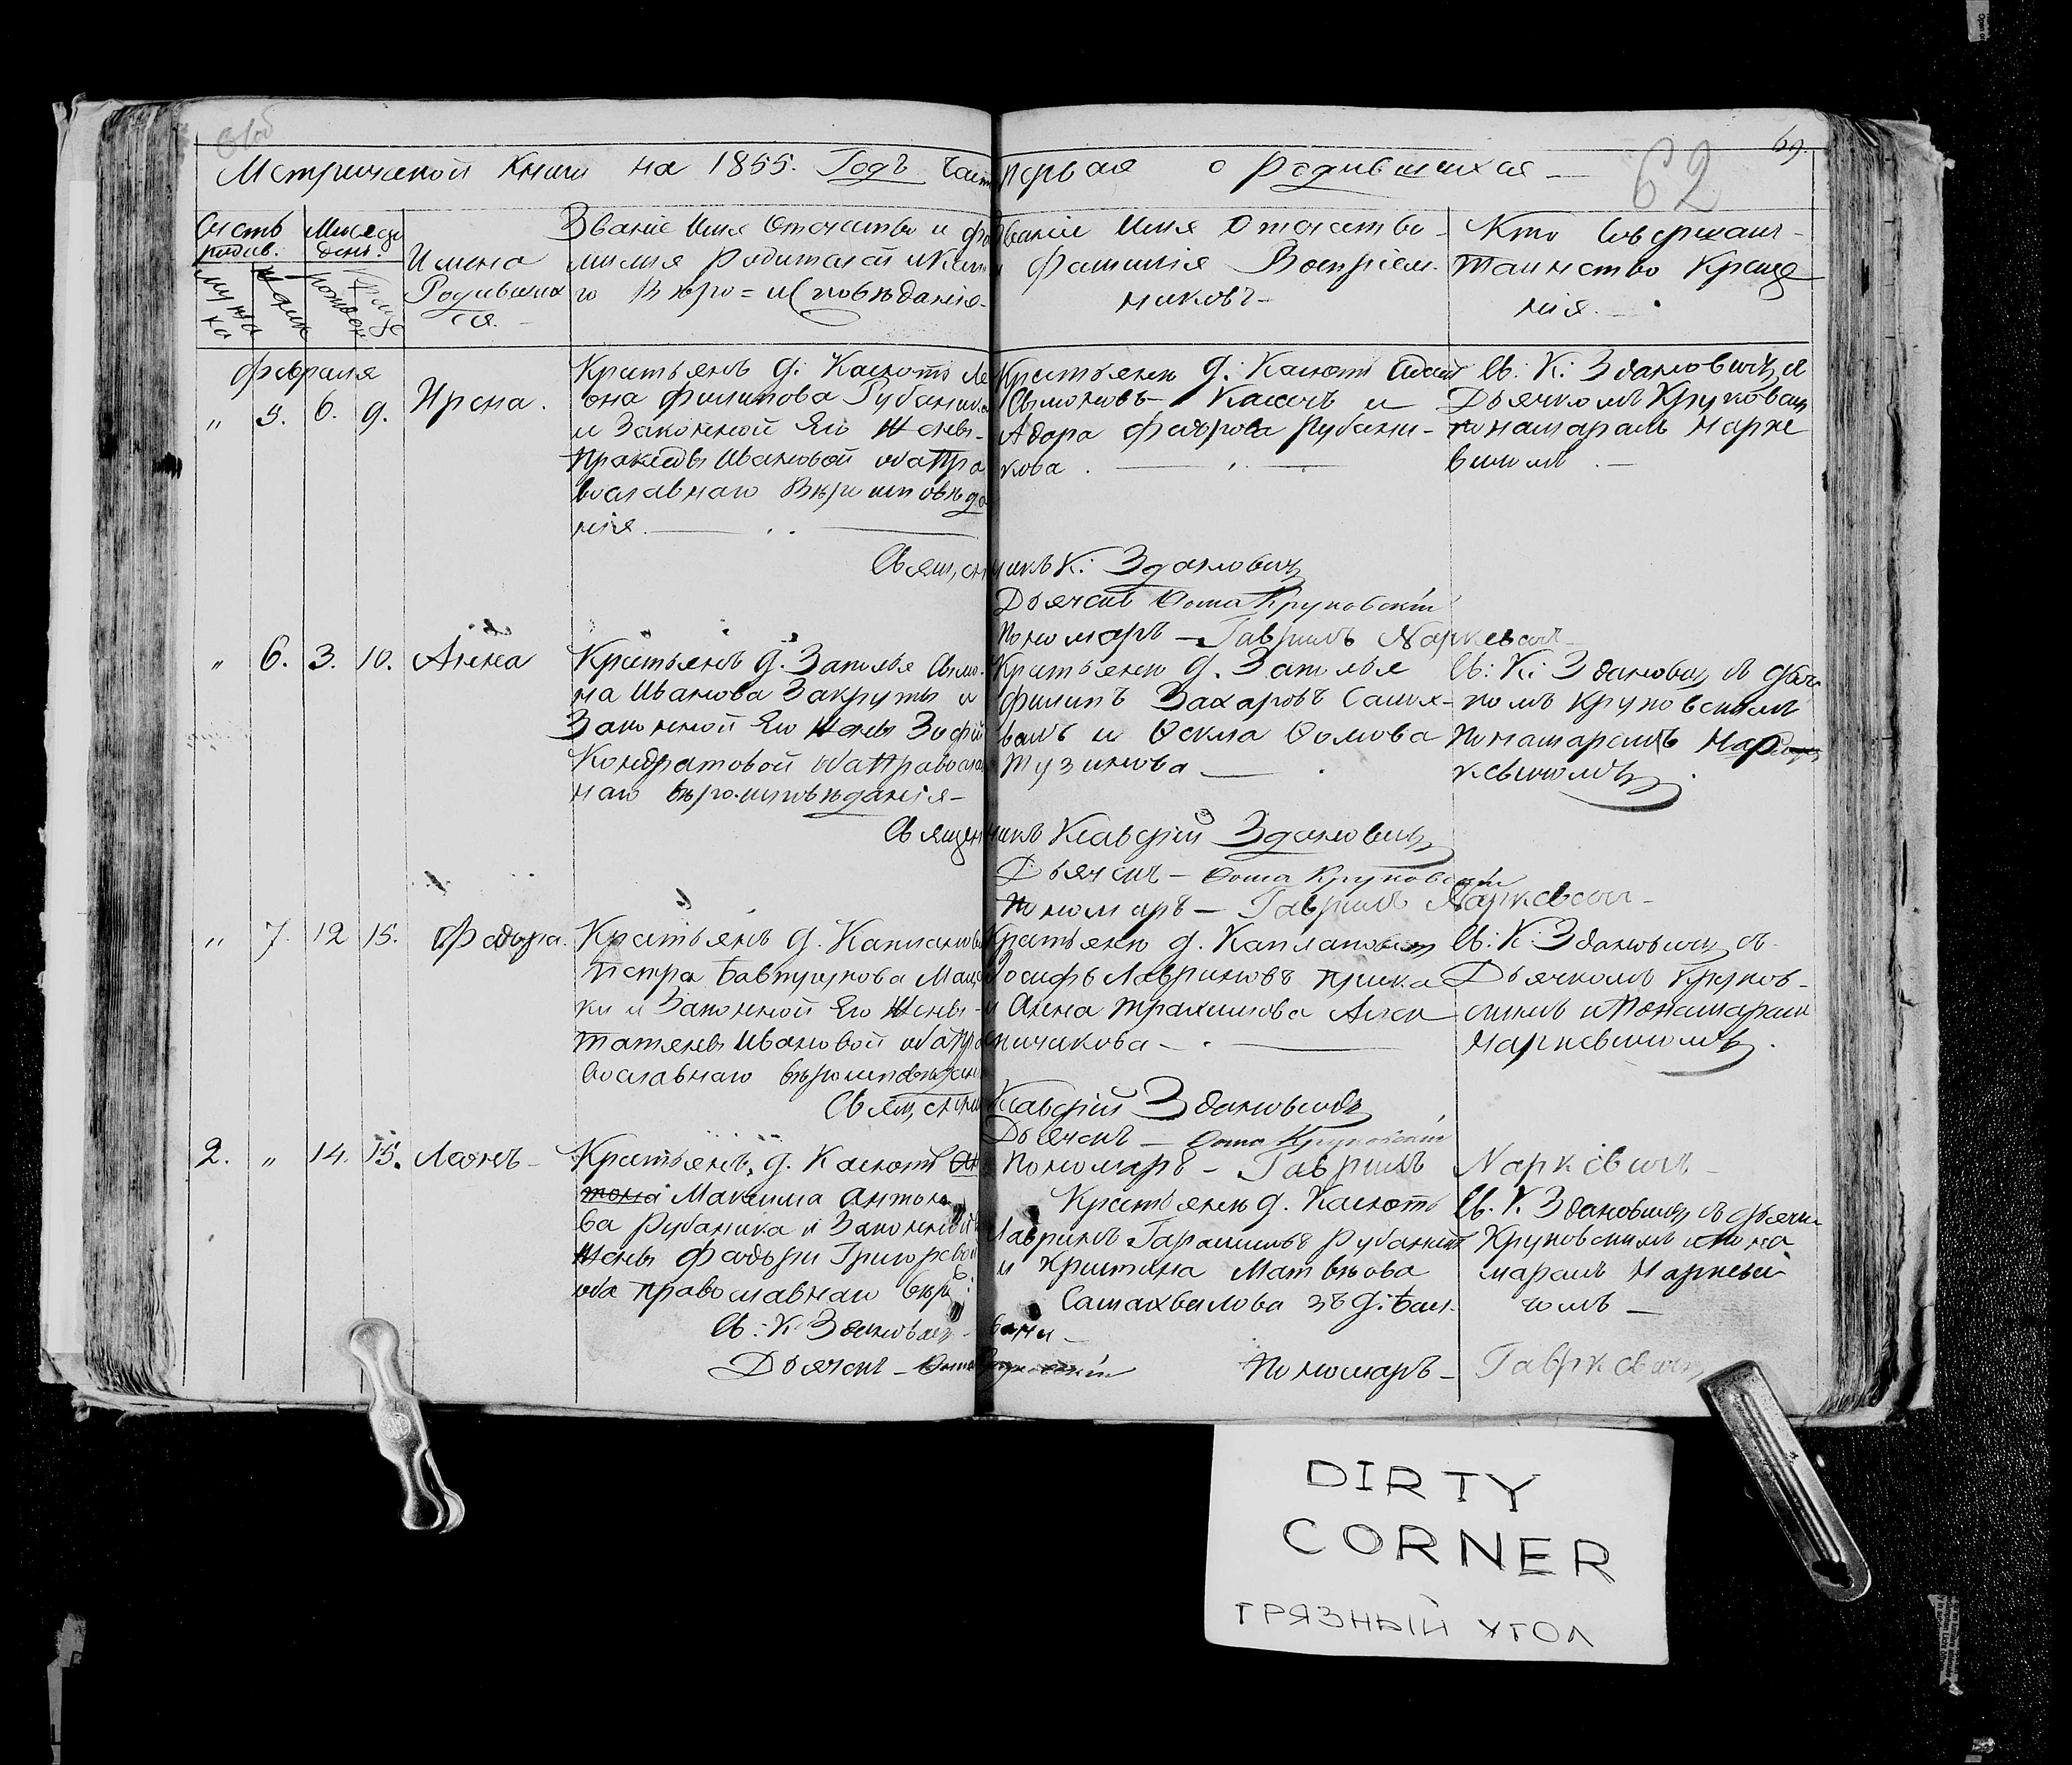 69.
62
Метрической Книги на 1855. Годъ Часть первая о Родившихся —
Счетъ родив.
Мужска
Женск
Месяцъ день.
Рожден
Креще
Имена Родившихся. —
Званіе Имя Отечество и фа
милия Родителей и Како
го Вѣро=Исповѣданія.
Званіе Имя Отечество
Фамилія Воспріем.
никовъ —
Кто Совершалъ
Таинство Креще
нія. —
Февраля
„ 5. 6. 9. Ирена.
Крестьянъ д: Каснотъ Ле
она Филипова Рубаника
и Законной Его Жены
Праксѣды Ивановой оба Пра
вославнаго Вѣроисповѣда
нія.
Крестьяне д: Каснотъ
Сымоновъ и
Адора Фаврова Рубани-
кова.
Св: К: Здановичъ с
Дьячкомъ Круковскимъ
понамаремъ Нарке
вичомъ. —
Священникъ К: Здановичъ
Дьячекъ Ѳома Круковскій
Пономарь — Гаврилъ Наркевичъ —
„ 6. 3. 10. Анна
Крестьянъ д. Заполья Сымо-
на Иванова Закруты и
Законной Его Жены Зофіи
Кондратовой оба Православ
наго вѣроисповѣданія —
Крестьяне д. Заполья
Филипъ Захаровъ Самох-
валъ и Ѳекла Ѳомова
Тузинова —
Св: К: Здановичъ съ дьяч
комъ Круковскимъ
Понамаремъ Нар
кевичомъ.
Священникъ Ксаверій Здановичъ
Дьячекъ — Ѳома Круковскій
Пономарь — Гаврилъ Наркевичъ —
„ 7. 12 15. Федора.
Крестьянъ д. Каплановичъ
Петра Бавтрукова
ки и Законной Его Жены
Татяны Ивановой оба Пра
вославнаго вѣроисповѣдан
Крестьяне д. Каплановичъ
Іосифъ Лавриновъ
и Анна Трахимова Алек
ничикова —
Св: К: Здановичъ съ
Дьячкомъ Круков-
скимъ и Понамаремъ
Наркевичомъ.
Священникъ Ксаверій Здановичъ
Дьячекъ — Ѳома Круковскій
Пономарь — Гаврилъ Наркевичъ —
2. „ 14. 15. Леонъ —
Крестьянъ д. Каснотъ Ан
тона Максима Антоно
ва Рубаника и Законной
Жены Федоры Григоревой
оба православнаго вѣро:
Крестьяне д. Каснотъ
Лавринъ Гарасимовъ Рубаникъ
и Христина Матвѣова
Самахвалова зъ д:
Св. К. Здановичъ съ дьячк
Круковскимъ и Пона
маремъ Наркеви
чомъ —
Св: К: Здановичъ —
Дьячекъ — Ѳома Круковскій
Пономарь — Гавркевичъ
DIRTY
CORNER
ГРЯЗНЫЙ УГОЛ